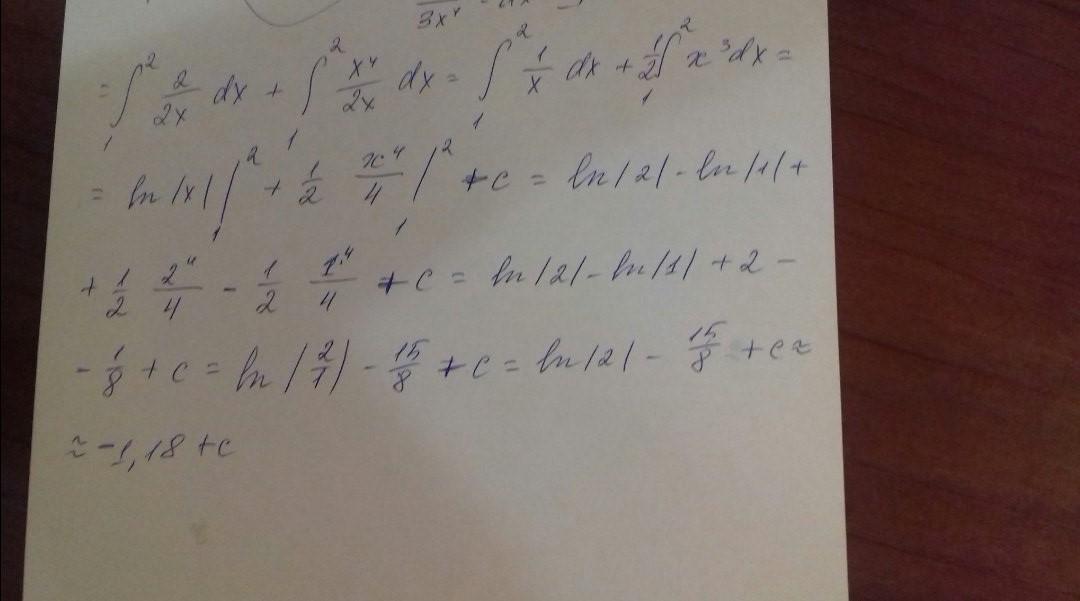 3x⁴
= ∫₁² 2/2x dx + ∫₁² x⁴/2x dx = ∫₁² 1/x dx + 1/2 ∫₁² x³dx =
= ln|x| |₁² + 1/2 x⁴/4 |₁² + c = ln|2| - ln|1| +
+ 1/2 2⁴/4 - 1/2 1⁴/4 + c = ln|2| - ln|1| + 2 -
- 1/8 + c = ln|2/1| - 15/8 + c = ln|2| - 15/8 + c ≈
≈ -1,18 + c